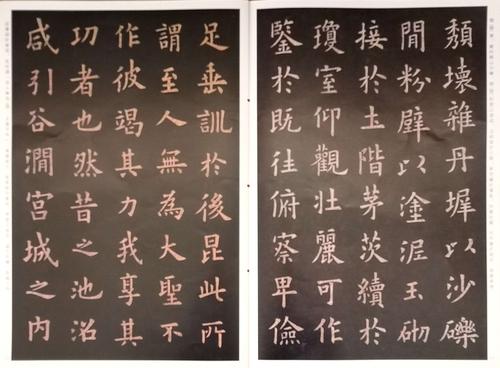 頹壞雜丹墀以沙礫
閒粉壁以塗泥玉砌
接於土階茅茨續於
瓊室仰觀壯麗可作
鑒於既往俯察卑儉
足垂訓於後昆此所
謂至人無為大聖不
作彼竭其力我享其
功者也然昔之池沼
咸引谷澗宮城之內